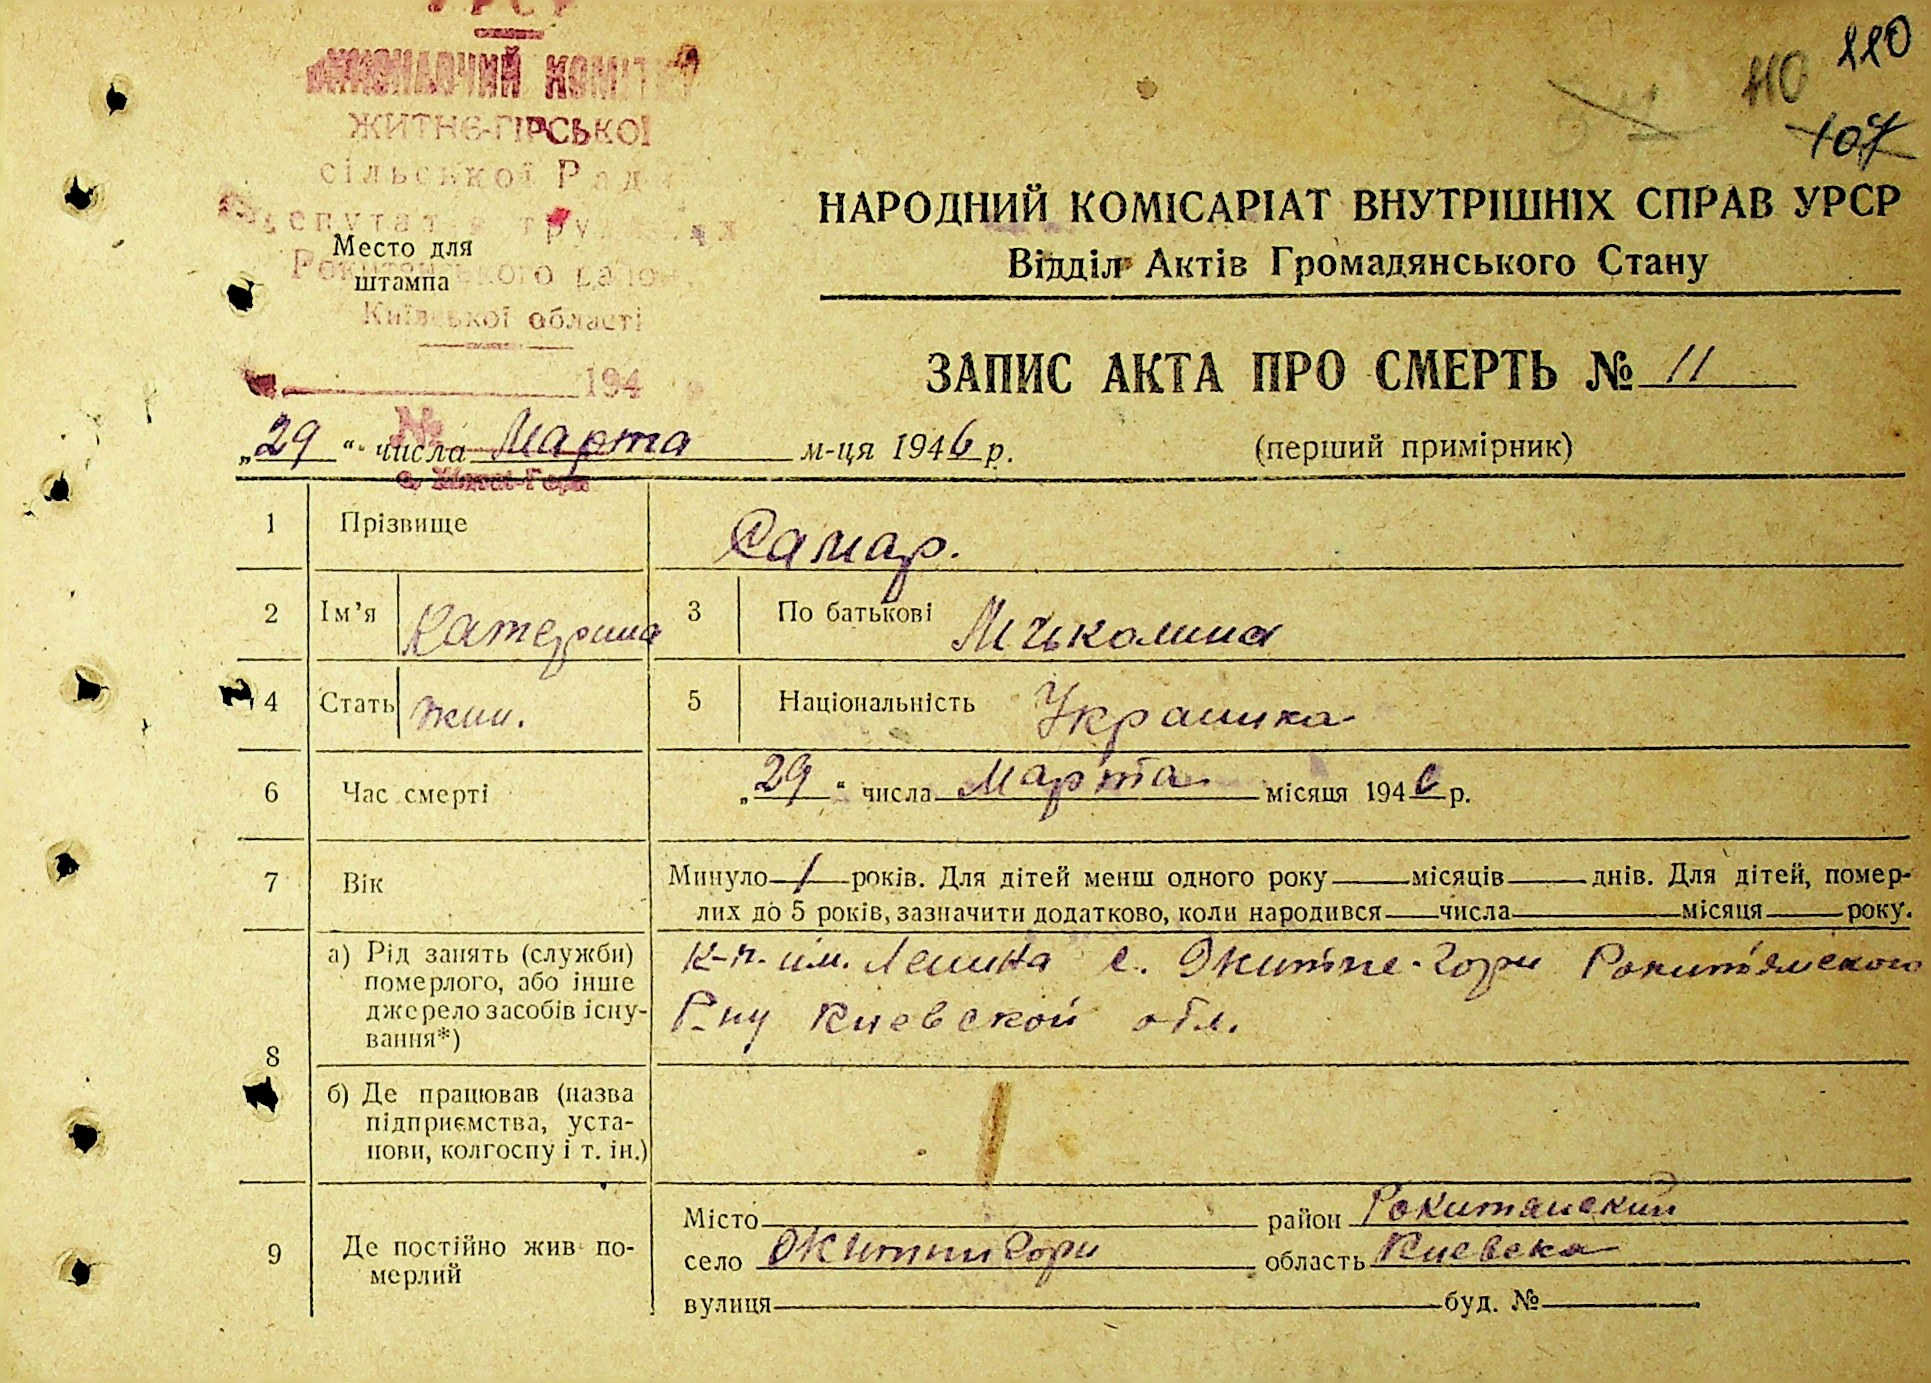 УРСР
ВИКОНАВЧИЙ КОМІТЕТ
ЖИТНЄ-ГІРСЬКОЇ
сільської Ради
депутатів трудящих
Рокитянського району
Київської області
194
№
с. Житні-Гори
Место для
штампа
110 220
107
НАРОДНИЙ КОМІСАРІАТ ВНУТРІШНІХ СПРАВ УРСР
Відділ Актів Громадянського Стану
ЗАПИС АКТА ПРО СМЕРТЬ № 11
„29“ числа Марта м-ця 1946 р. (перший примірник)
1 Прізвище Самар.
2 Ім’я Катерина 3 По батькові Миколина
4 Стать жин. 5 Національність Украинка
6 Час смерті „29“ числа Марта місяця 1946 р.
7 Вік Минуло 1 років. Для дітей менш одного року місяців днів. Для дітей, помер-
лих до 5 років, зазначити додатково, коли народився числа місяця року.
8 а) Рід занять (служби)
померлого, або інше
джерело засобів існу-
вання*)
к-п. им. Ленина с. Житне-Гори Рокитянского
Р-ну Киевской обл.
б) Де працював (назва
підприємства, уста-
нови, колгоспу і т. ін.)
9 Де постійно жив по-
мерлий
Місто район Рокитянский
село Житни Гори область Киевска
вулиця буд. №